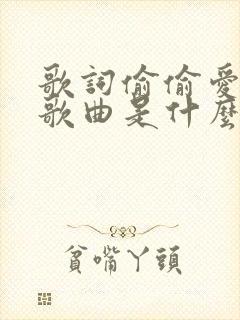 歌詞偷偷愛
歌曲是什麼
貧嘴丫頭